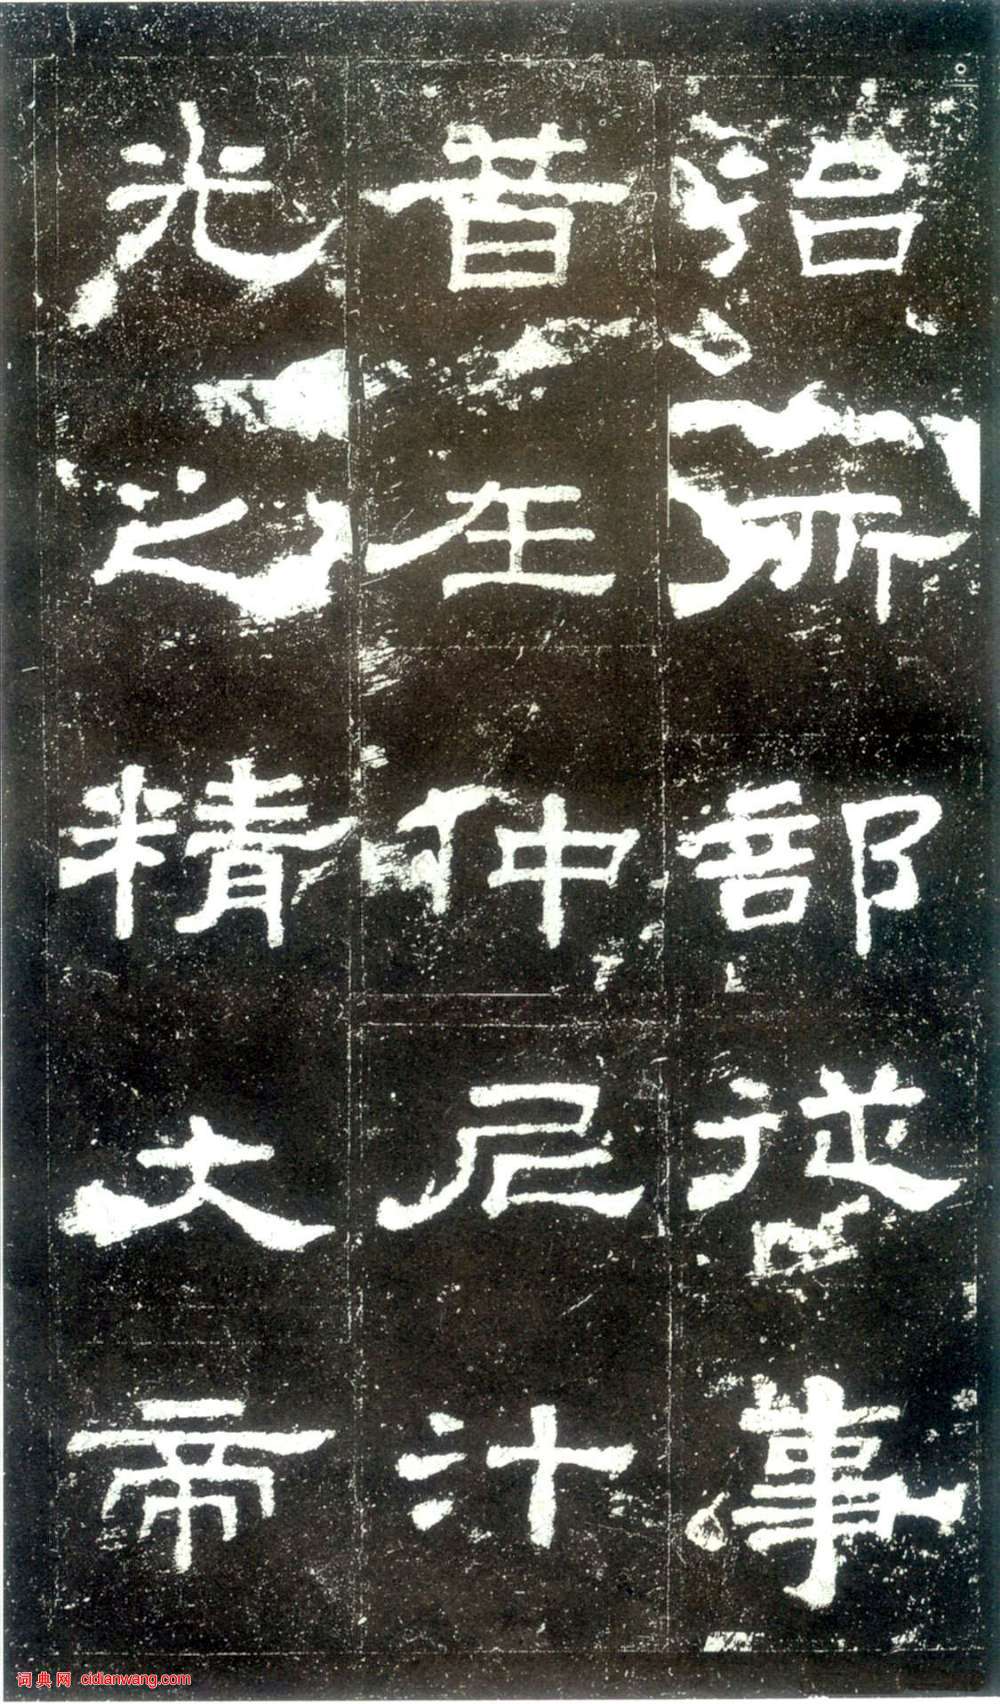 治所部從事
昔在仲尼汁
光之精大帝
词典网 cidianwang.com